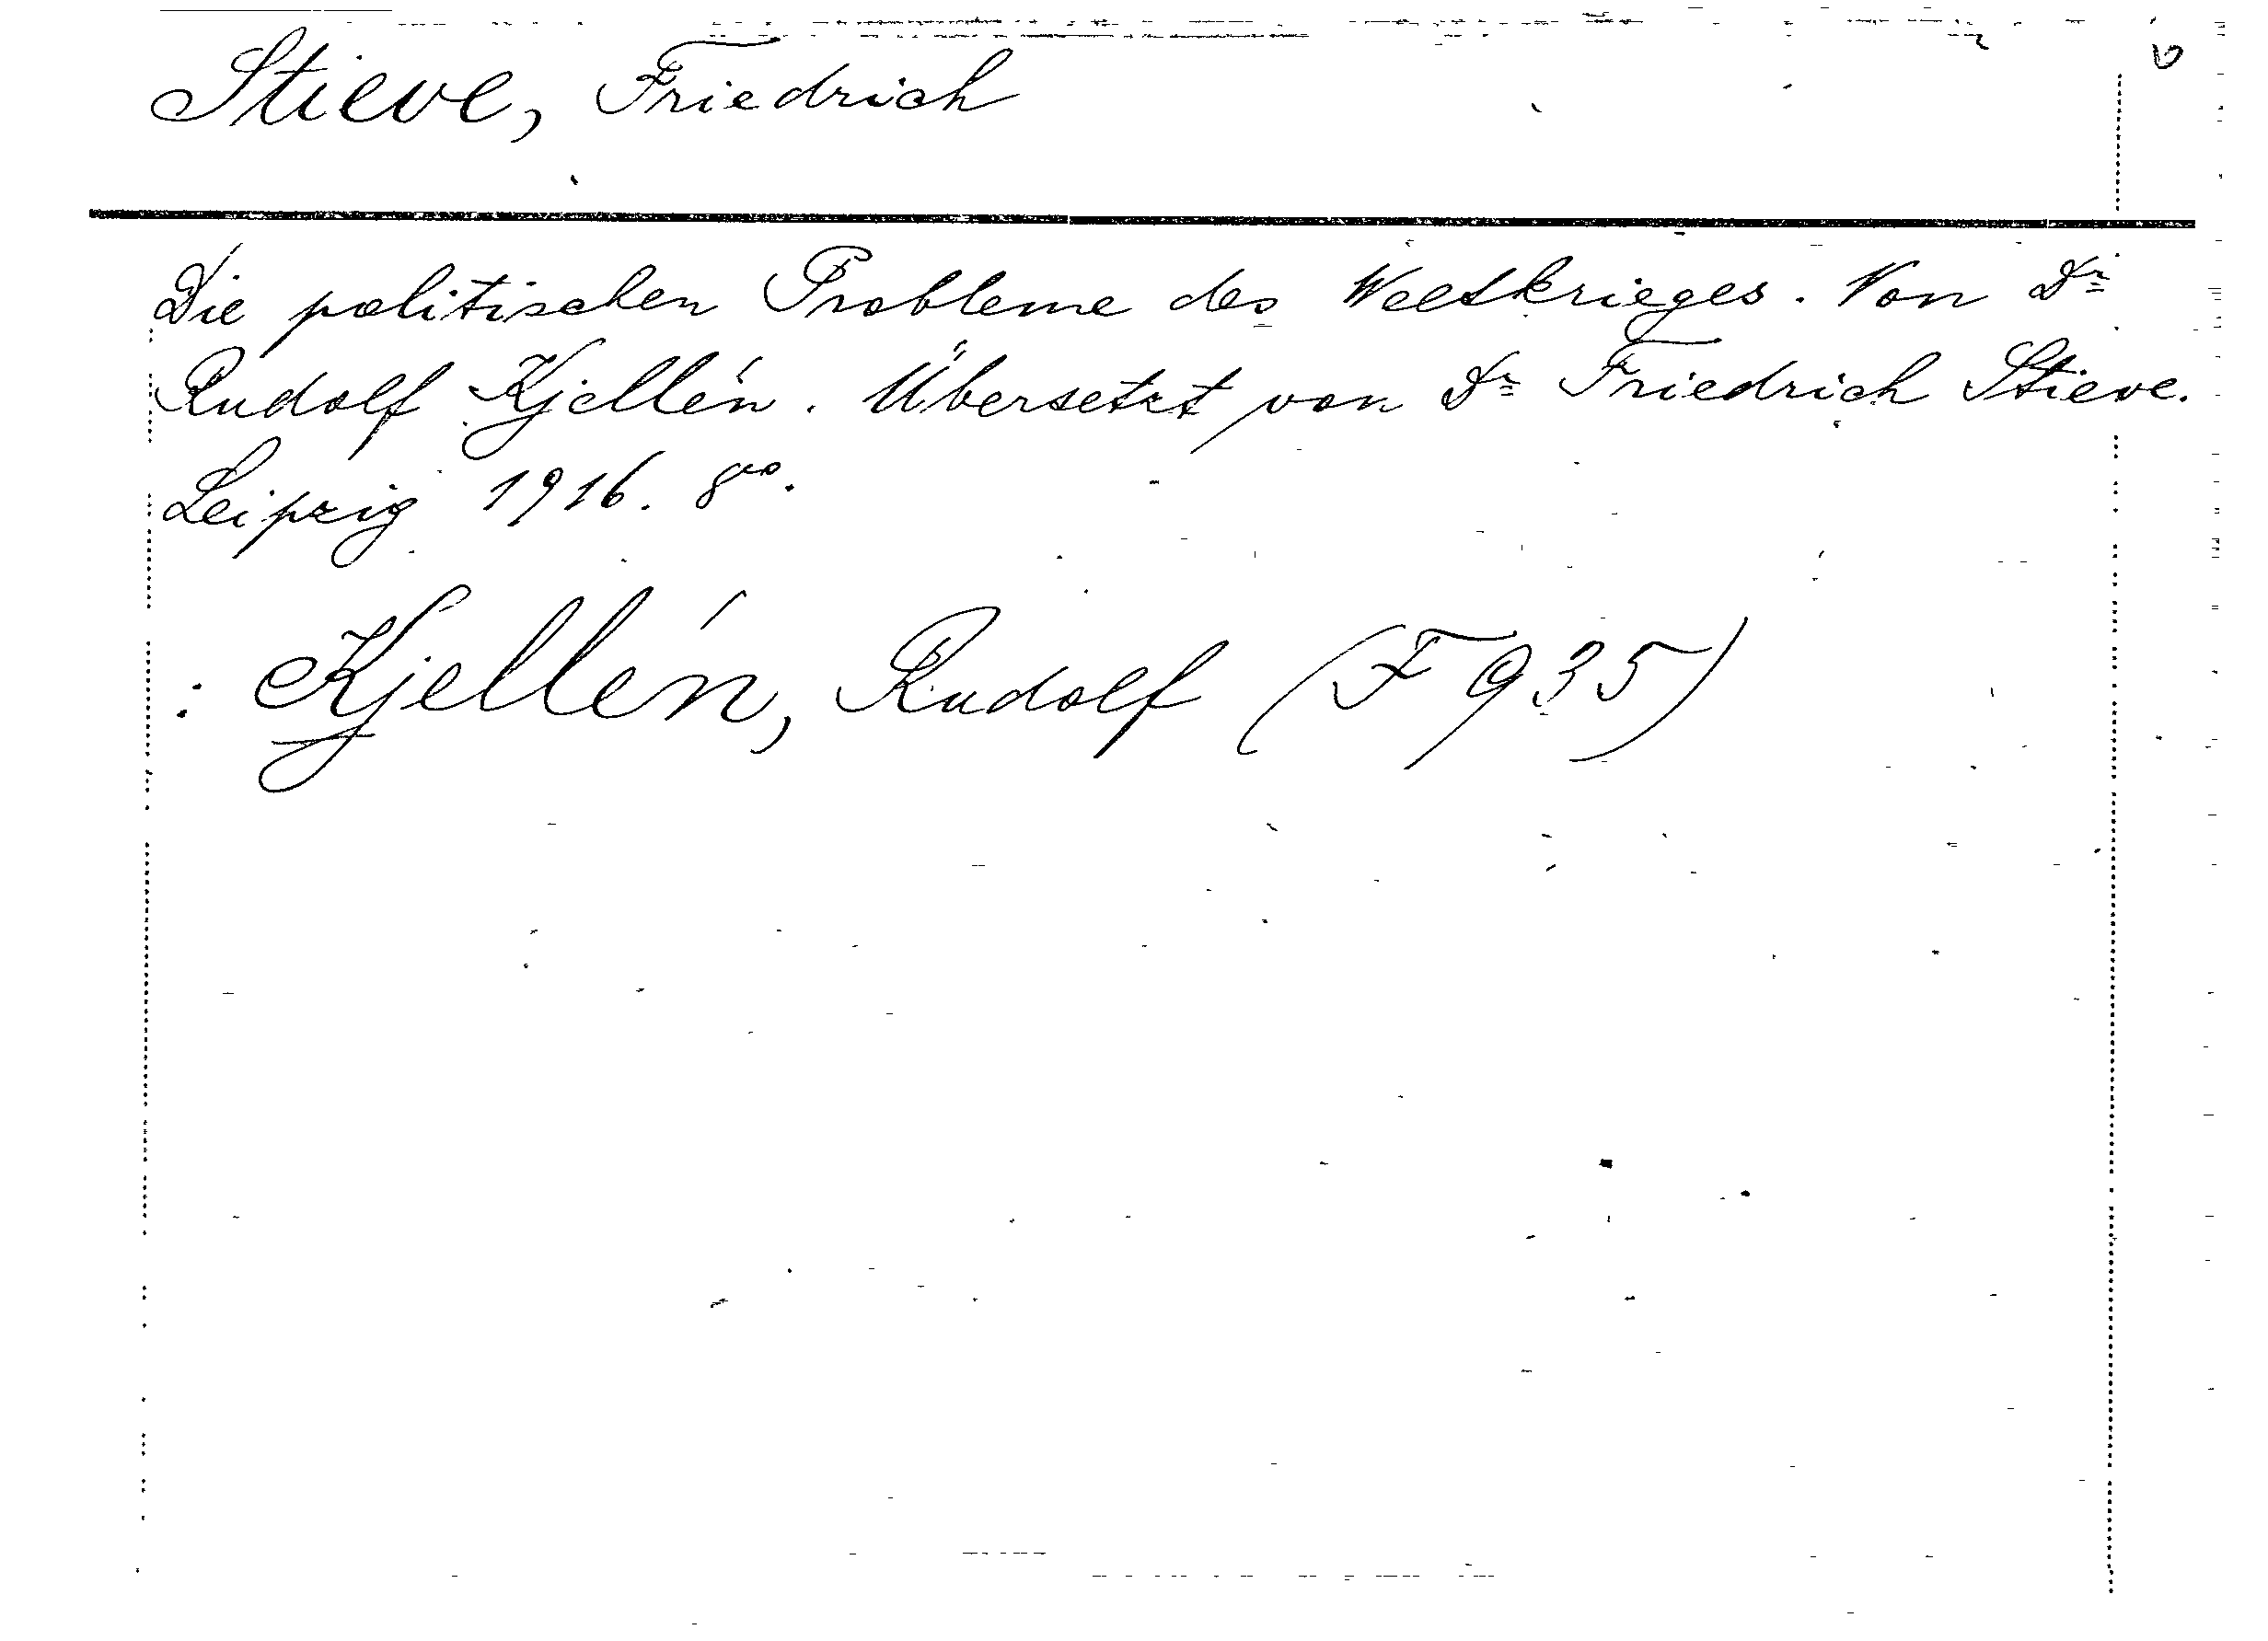 Stieve, Friedrich
Die politischen Probleme des Weltkrieges. Von Dr
Rudolf Kjellén. Übersetzt von Dr Friedrich Stieve.
Leipzig 1916. 8vo.
: Kjellén, Rudolf (F 935)